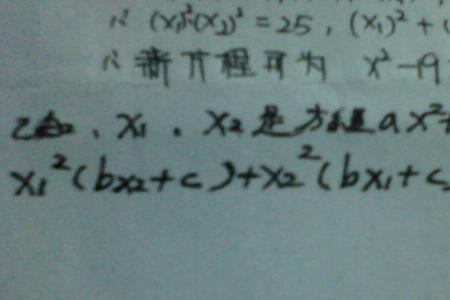 ∴ (x₁)²·(x₂)² = 25, (x₁)² +
∴ 新方程可为 x² - 19
已知、x₁、x₂是方程ax²+
x₁²(bx₂+c)+x₂²(bx₁+c